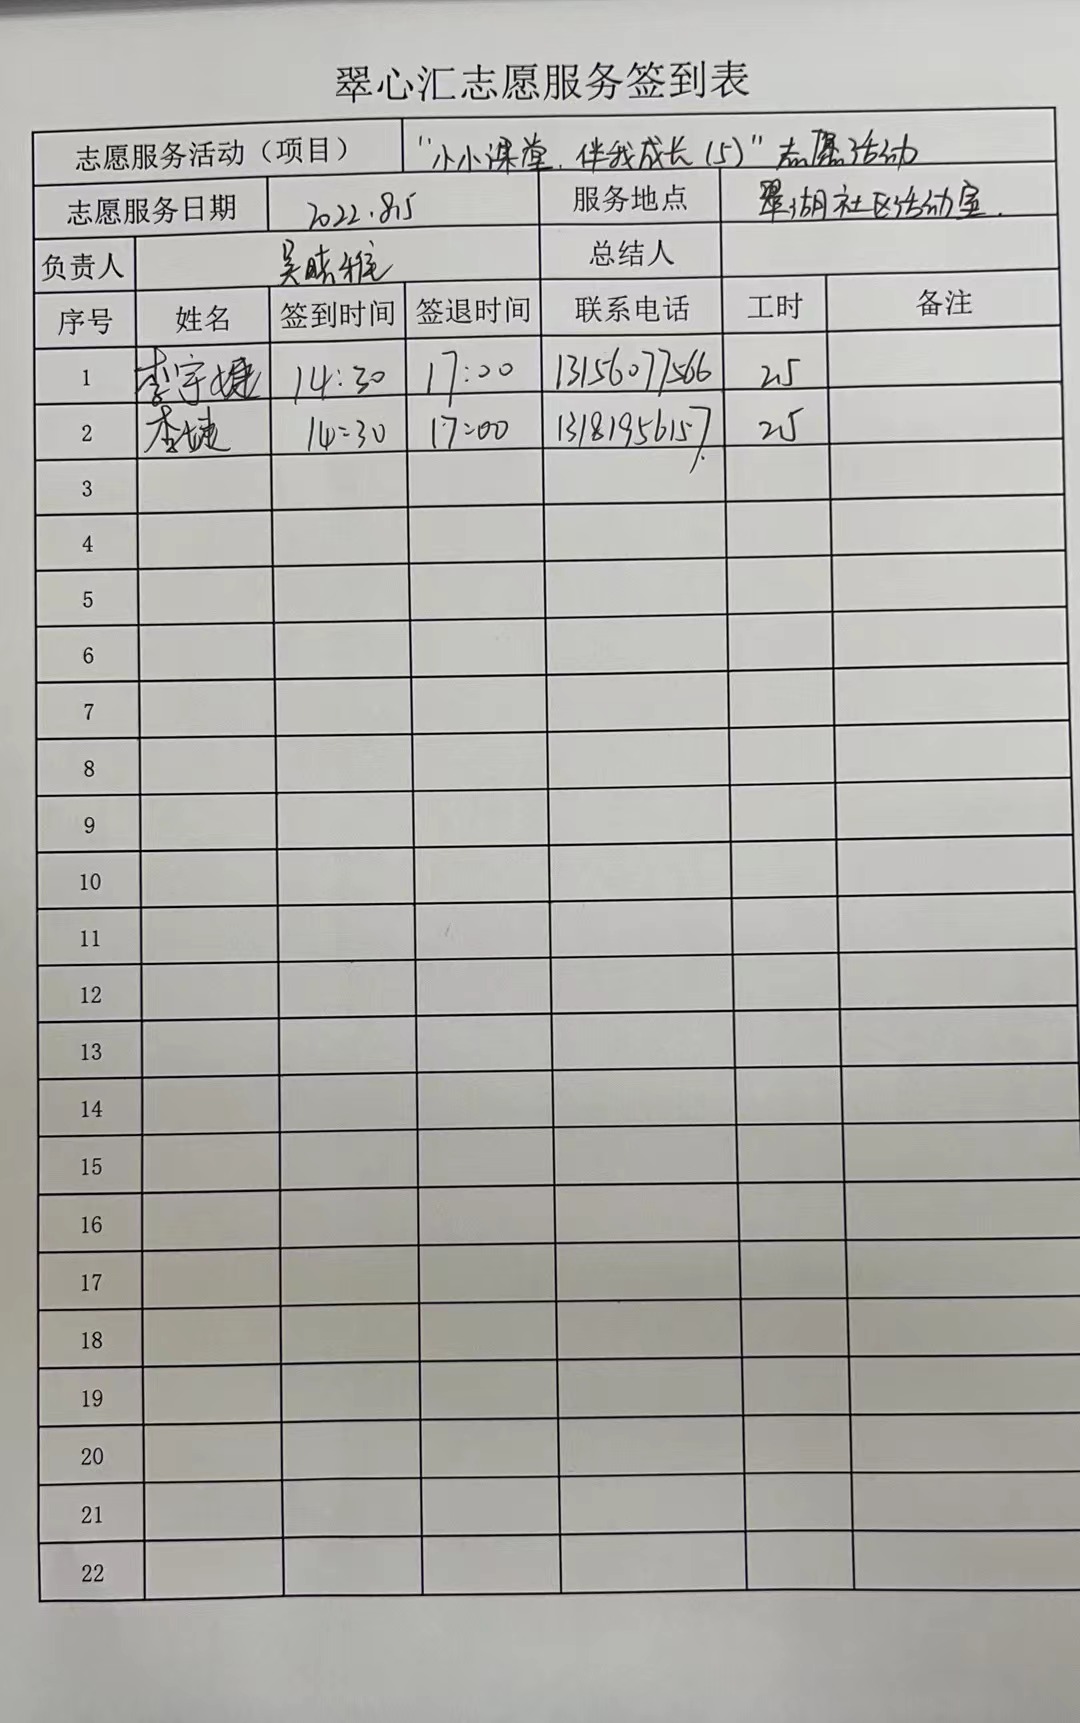 翠心汇志愿服务签到表
志愿服务活动（项目） "小小课堂.伴我成长(5)"志愿活动
志愿服务日期 2022.8.15 服务地点 翠湖社区活动室.
负责人 吴晓雅 总结人
序号 姓名 签到时间 签退时间 联系电话 工时 备注
1 李宇婕 14:30 17:00 13156077566 2.5
2 李婕 14:30 17:00 13181956157 2.5
3
4
5
6
7
8
9
10
11
12
13
14
15
16
17
18
19
20
21
22